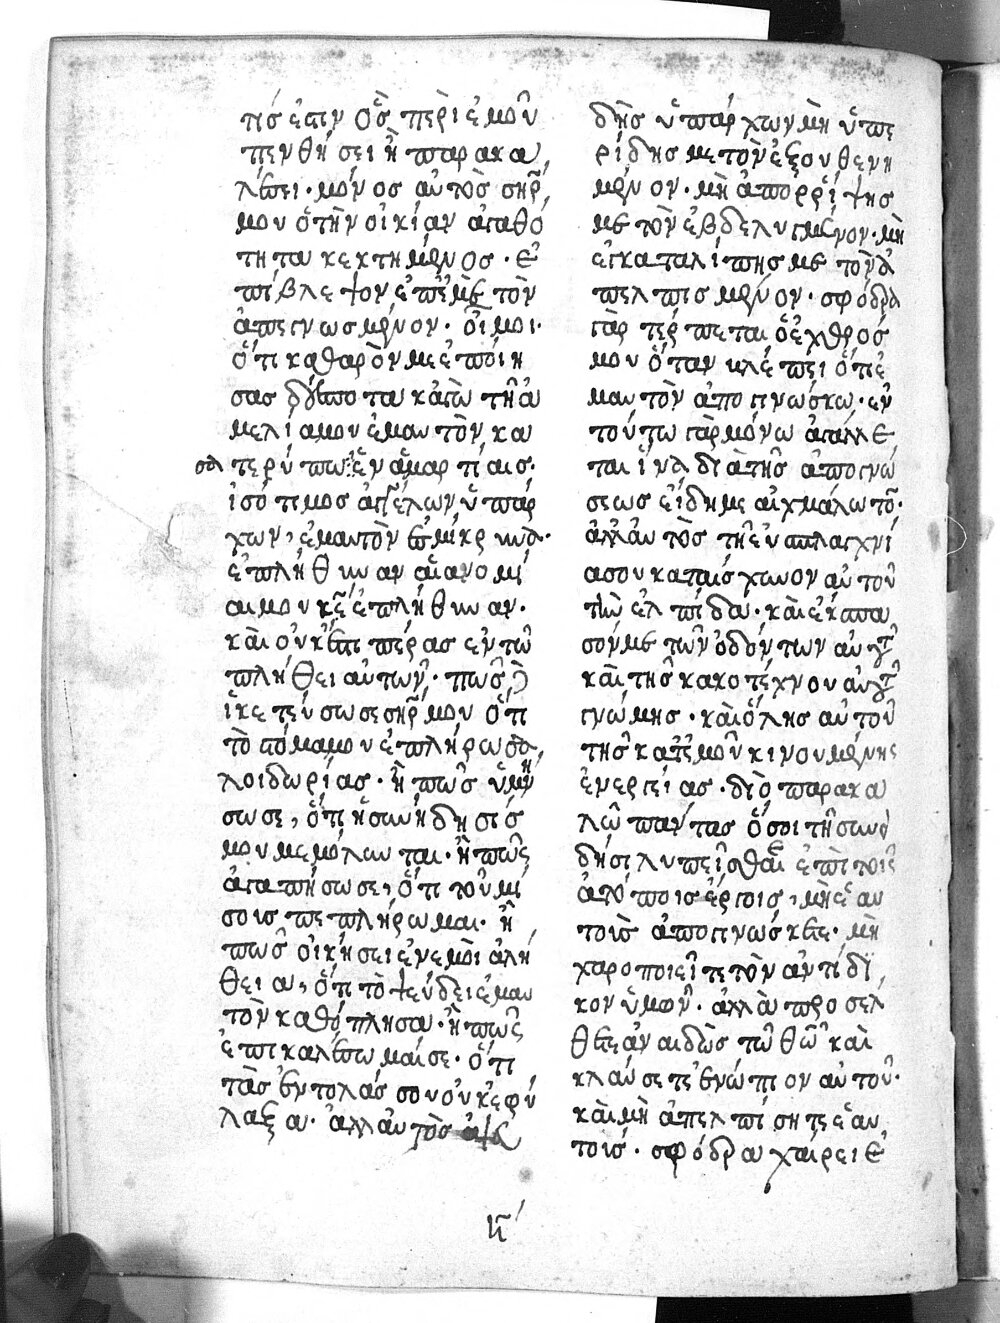 τίς ἐστιν ὃς περὶ ἐμοῦ
πενθήσει ἢ παρακα
λέσει· μόνος αὐτὸς σηρ
μου ὁ τὴν οἰκίαν ἀγαθό
τητα κεκτημένος· ἐ
πίβλεψον ἐπ' ἐμὲ τὸν
ἀπεγνωσμένον· οἴμοι·
ὅτι καθαρόν με ἐποίη
σας δέσποτα κἀγὼ τῇ ἀ
μελίᾳ μου ἐμαυτὸν κα
τερύπωσα ἐν ἁμαρτίαις·
ἰσότιμος ἀγγέλων ὑπάρ
χων, ἐμαυτὸν ἐσμίκρυνα·
ἐπλήθυναν αἱ ἀνομί
αι μου κε ἐπλήθυναν·
καὶ οὐκ ἔστι πέρας ἐν τῷ
πλήθει αὐτῶν· πῶς
ἱκετεύσω σε σηρ μου ὅτι
τὸ στόμα μου ἐπλήρωσα
λοιδωρίας· ἢ πῶς ὑμνή
σω σε, ὅτι ἡ συνήδησίς
μου μεμόλυνται· ἢ πῶς
ἀγαπήσω σε, ὅτι τοῦ μί
σοις πεπλήρωμαι· ἢ
πῶς οἰκήσει ἐν ἐμοὶ ἀλή
θεια, ὅτι τὸ ψεύδει ἐμαυ
τὸν καθόπλησα· ἢ πῶς
ἐπικαλέσωμαί σε· ὅτι
τὰς ἐντολάς σου οὐκ ἐφύ
λαξα· ἀλλ' αὐτὸς
δῆς ὑπάρχων μὴ ὑπε
ρίδης με τὸν ἐξουθενη
μένον· μὴ ἀπορρίψης
με τὸν ἐβδελυγμένον· μὴ
ἐγκαταλίπης με τὸν ἀ
πελπισμένον· σφόδρα
γὰρ τέρπεται ὁ ἐχθρός
μου ὅταν βλέπει ὅτι ἐ
μαυτὸν ἀπογινώσκω· ἐν
τούτω γὰρ μόνω ἀγάλλε
ται ἵνα διὰ τῆς ἀπογνώ
σεως εἴδη με αἰχμάλωτον·
ἀλλ' αὐτὸς τῇ εὐσπλαγχνί
α σου καταίσχυνον αὐτοῦ
τὴν ἐλπίδα· καὶ ἔκσπα
σόν με τῶν ὀδόντων αὐτοῦ
καὶ τῆς κακοτέχνου αὐτοῦ
γνώμης· καὶ ὅλης αὐτοῦ
τῆς κατ' ἐμοῦ κινουμένης
ἐνεργείας· διὸ παρακα
λῶ πάντας ὅσοι τὴ συνει
δήσι λυπεῖσθαι ἐπὶ τοῖς
ἀτόποις ἔργοις, μὴ ἑαυ
τοῖς ἀπογνώσκετε· μὴ
χαροποιεῖτε τὸν ἀντίδι
κον ὑμῶν· ἀλλὰ προσέλ
θετε ἀναιδῶς τῷ θῶ καὶ
κλαύσετε ἐνώπιον αὐτοῦ·
καὶ μὴ ἀπελπίσητε ἑαυ
τοῖς· σφόδρα χαίρει ἐ